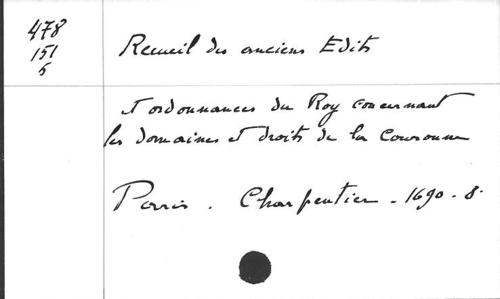 478
151
6
Recueil des anciens Edits
et ordonnances du Roy concernant
les domaines et droits de la Couronne
Paris . Charpentier - 1690 - 8°